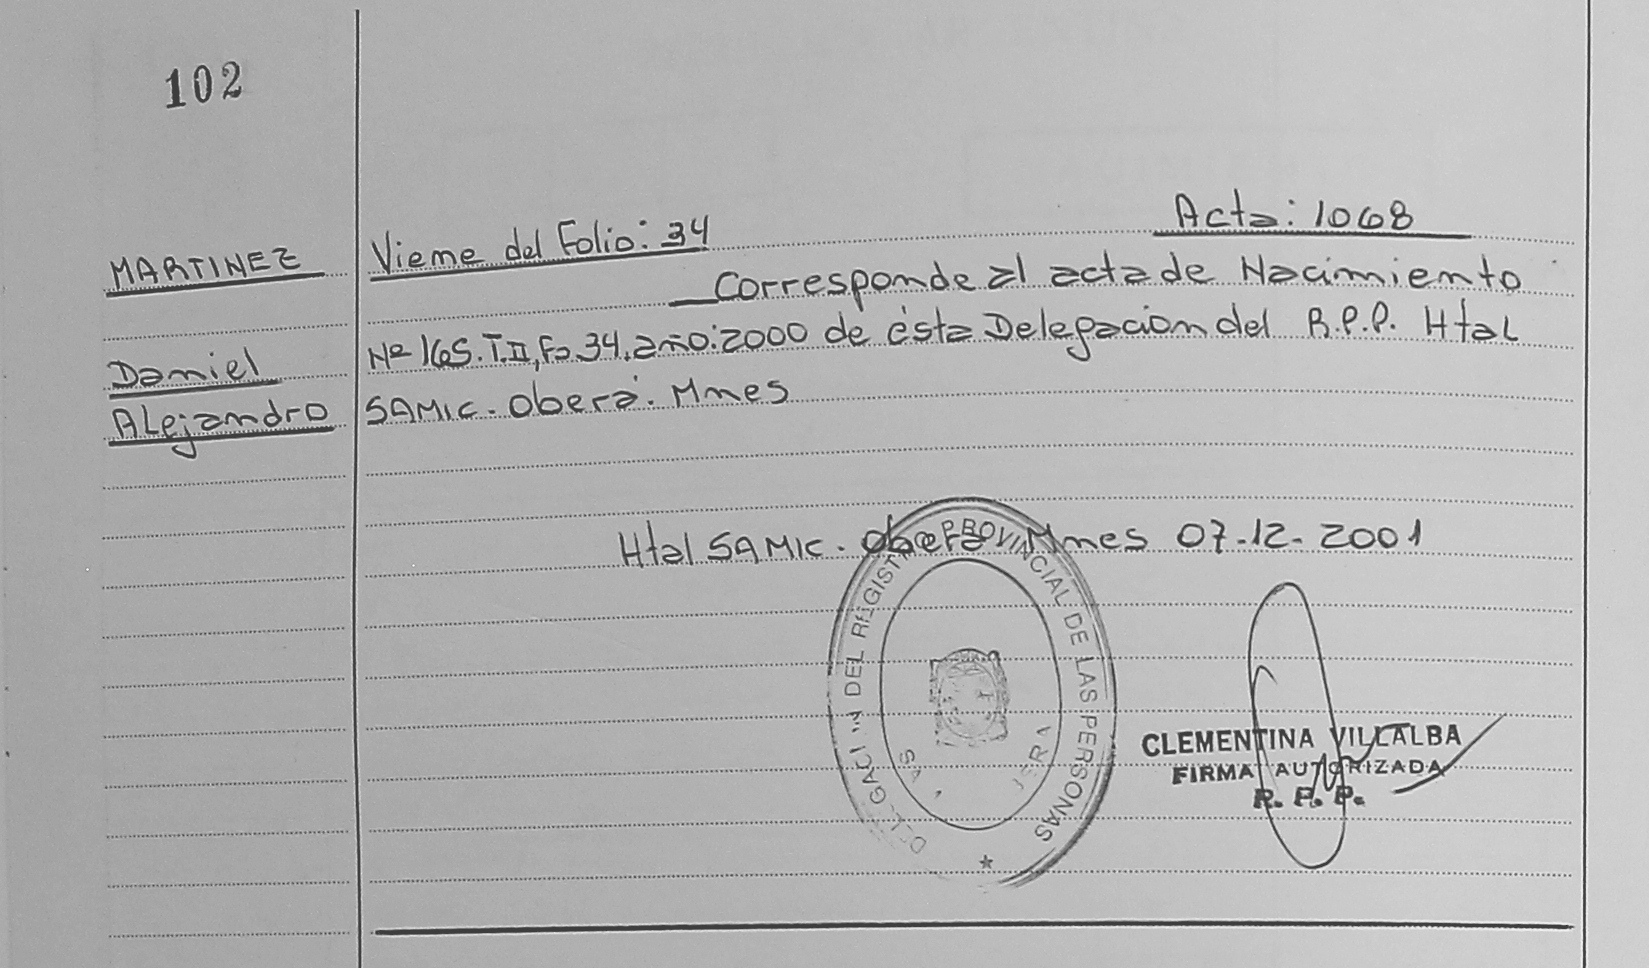 102
Acta: 1068
MARTINEZ
Viene del Folio: 34
Corresponde al acta de Nacimiento
Daniel
Nº 165. T.II, Fo.34. año: 2000 de ésta Delegación del R.P.P. Htal
Alejandro
SAMIC. Oberá. Mnes
Htal SAMIC. Oberá Mnes 07-12-2001
DEL REGISTR PROVINCIAL DE LAS PERSONAS
CLEMENTINA VILLALBA
FIRMA AUTORIZADA
R. P. P.